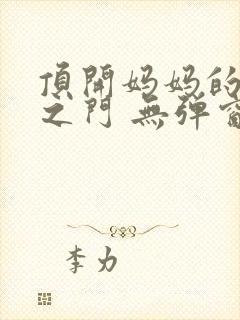 頂開妈妈的
之门 無弹窗
李力